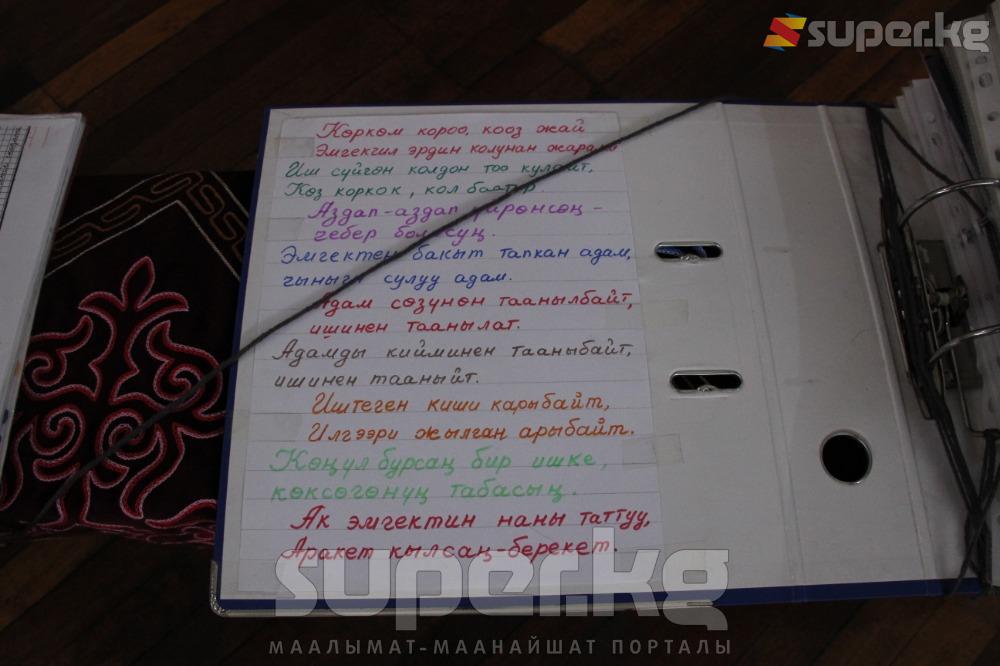 super.kg
Көркөм короо, кооз жай
Эмгекчил эрдин колунан
Иш сүйгөн колдон тоо кулайт,
Көз коркок, кол баатыр
Аздап-аздап үйрөнсөң -
чебер болосуң.
Эмгектен бакыт тапкан адам,
чыныгы сулуу адам.
Адам сөзүнөн таанылбайт,
ишинен таанылат.
Адамды кийминен тааныбайт,
ишинен тааныйт.
Иштеген киши карыбайт,
Илгээри жылган арыбайт.
Көңүл бурсаң бир ишке,
көксөгөнүң табасың.
Ак эмгектин наны таттуу,
Аракет кылсаң-берекет.
super.kg
МААЛЫМАТ-МААНАЙШАТ ПОРТАЛЫ